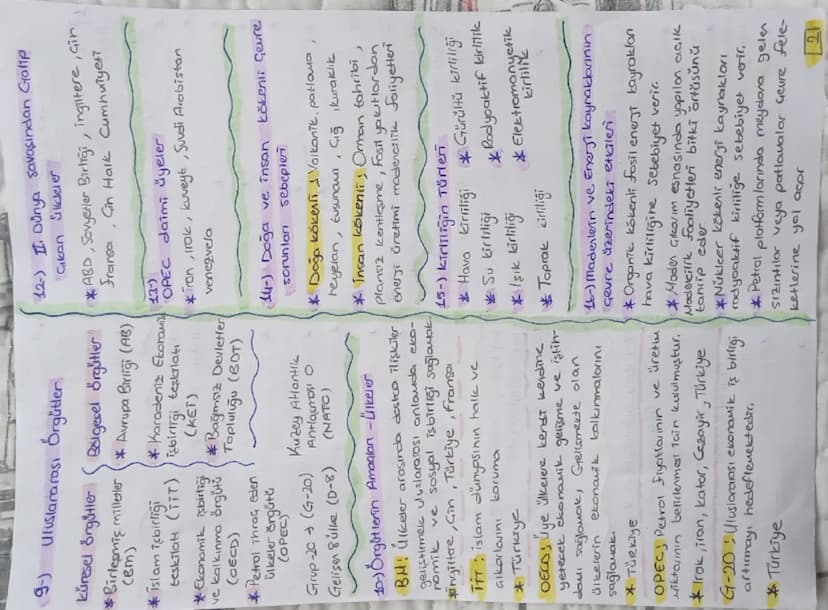 9-) Uluslararası Örgütler
Küresel Örgütler
* Birleşmiş milletler
(BM)
* İslam işbirliği
teşkilatı (İİT)
* Ekonomik işbirliği
ve kalkınma örgütü
(OECD)
* Petrol ihraç eden
ülkeler örgütü
(OPEC)
Grup 20 → (G-20)
Gelişen 8 ülke (D-8)
Bölgesel Örgütler
* Avrupa Birliği (AB)
* Karadeniz Ekonomik
işbirliği teşkilatı
(KEİ)
* Bağımsız Devletler
Topluluğu (BDT)
Kuzey Atlantik
Antlaşması O
(NATO)
10-) Örgütlerin Amaçları - Ülkeler
BM: Ülkeler arasında dostça ilişkiler
geliştirmek uluslararası anlamda eko-
nomik ve sosyal işbirliği sağlamak
* İngiltere, Çin, Türkiye, Fransa
İİT: İslam dünyasının hak ve
çıkarlarını koruma
* Türkiye
OECD: Üye ülkelere kendi kendine
yetecek ekonomik gelişme ve istih-
damı sağlamak, Gelişmekte olan
ülkelerin ekonomik kalkınmalarını
sağlamak
* Türkiye
OPEC: Petrol fiyatlarının ve üretim
miktarının belirlenmesi için kurulmuştur.
* Irak, İran, Katar, Cezayir, Türkiye
G-20: Uluslararası ekonomik iş birliği
artırmayı hedeflemektedir.
* Türkiye
12-) II. Dünya savaşından Galip
Çıkan Ülkeler
* ABD, Sovyetler Birliği, İngiltere, Çin
Fransa, Çin Halk Cumhuriyeti
13-)
OPEC daimi üyeler
* İran, Irak, Kuveyt, Suudi Arabistan
Venezuela
14-) Doğa ve insan kökenli Çevre
sorunları sebepleri
* Doğa kökenli: Volkanik patlama,
heyelan, tusunami, Çığ, kuraklık
* İnsan kökenli: Orman tahribi,
plansız kentleşme, Fosil yakıtlardan
enerji üretimi madencilik faliyetleri
15-) Kirliliğin Türleri
* Hava kirliliği
* Su kirliliği
* Işık kirliliği
* Toprak kirliliği
* Gürültü kirliliği
* Radyoaktif kirlilik
* Elektromanyetik
kirlilik
16-) Madenlerin ve Enerji kaynaklarının
Çevre üzerindeki etkileri
* Organik kökenli fosil enerji kaynakları
hava kirliliğine sebebiyet verir.
* Maden çıkarım esnasında yapılan açık
Madencilik faaliyetleri bitki örtüsünü
tahrip eder
* Nükleer kökenli enerji kaynakları
radyoaktif kirliliğe sebebiyet verir.
* Petrol platformlarında meydana gelen
sızıntılar veya patlamalar çevre fela-
ketlerine yol açar
2